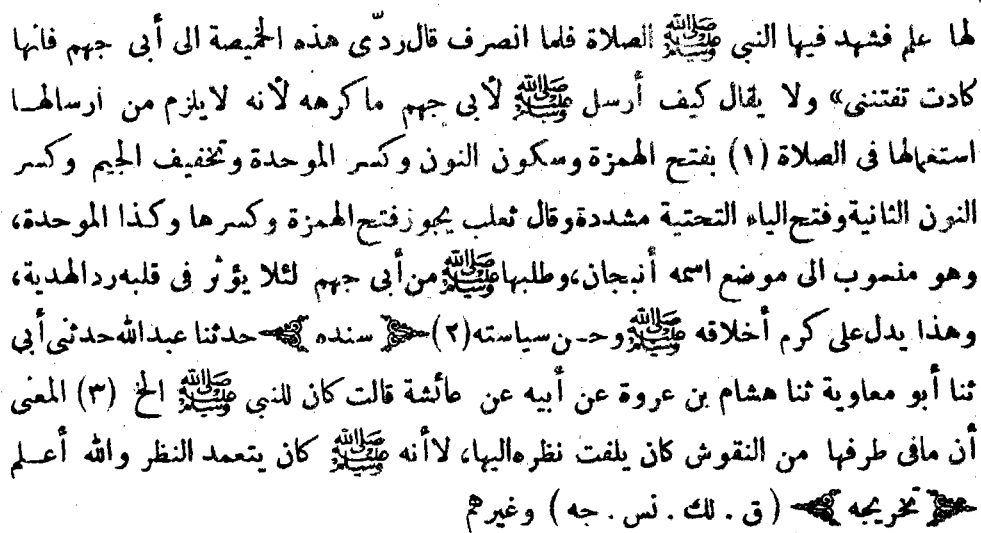 لها علم فشهد فيها النبي ﷺ الصلاة فلما انصرف قال ردّى هذه الخميصة الى أبى جهم فانها
كادت تفتننى» ولا يقال كيف أرسل ﷺ لأبى جهم ماكرهه لأنه لايلزم من ارسالهـا
استعمالها فى الصلاة (١) بفتح الهمزة وسكون النون وكسر الموحدة وتخفيف الجيم وكسر
النون الثانية وفتح الياء التحتية مشددة وقال ثعلب يجوز فتح الهمزة وكسرها وكذا الموحدة،
وهو منسوب الى موضع اسمه أنبجان، وطلبها ﷺ من أبى جهم لئلا يؤثر فى قلبه رد الهدية،
وهذا يدل على كرم أخلاقه ﷺ وحسن سياسته (٢) ﴿ سنده ﴾ حدثنا عبد الله حدثنى أبي
ثنا أبو معاوية ثنا هشام بن عروة عن أبيه عن عائشة قالت كان للنبي ﷺ الخ (٣) المعنى
أن مافى طرفها من النقوش كان يلفت نظره اليها، لا أنه ﷺ كان يتعمد النظر والله أعـلم
﴿ تخريجه ﴾ (ق . لك . نس . جه ) وغيرهم